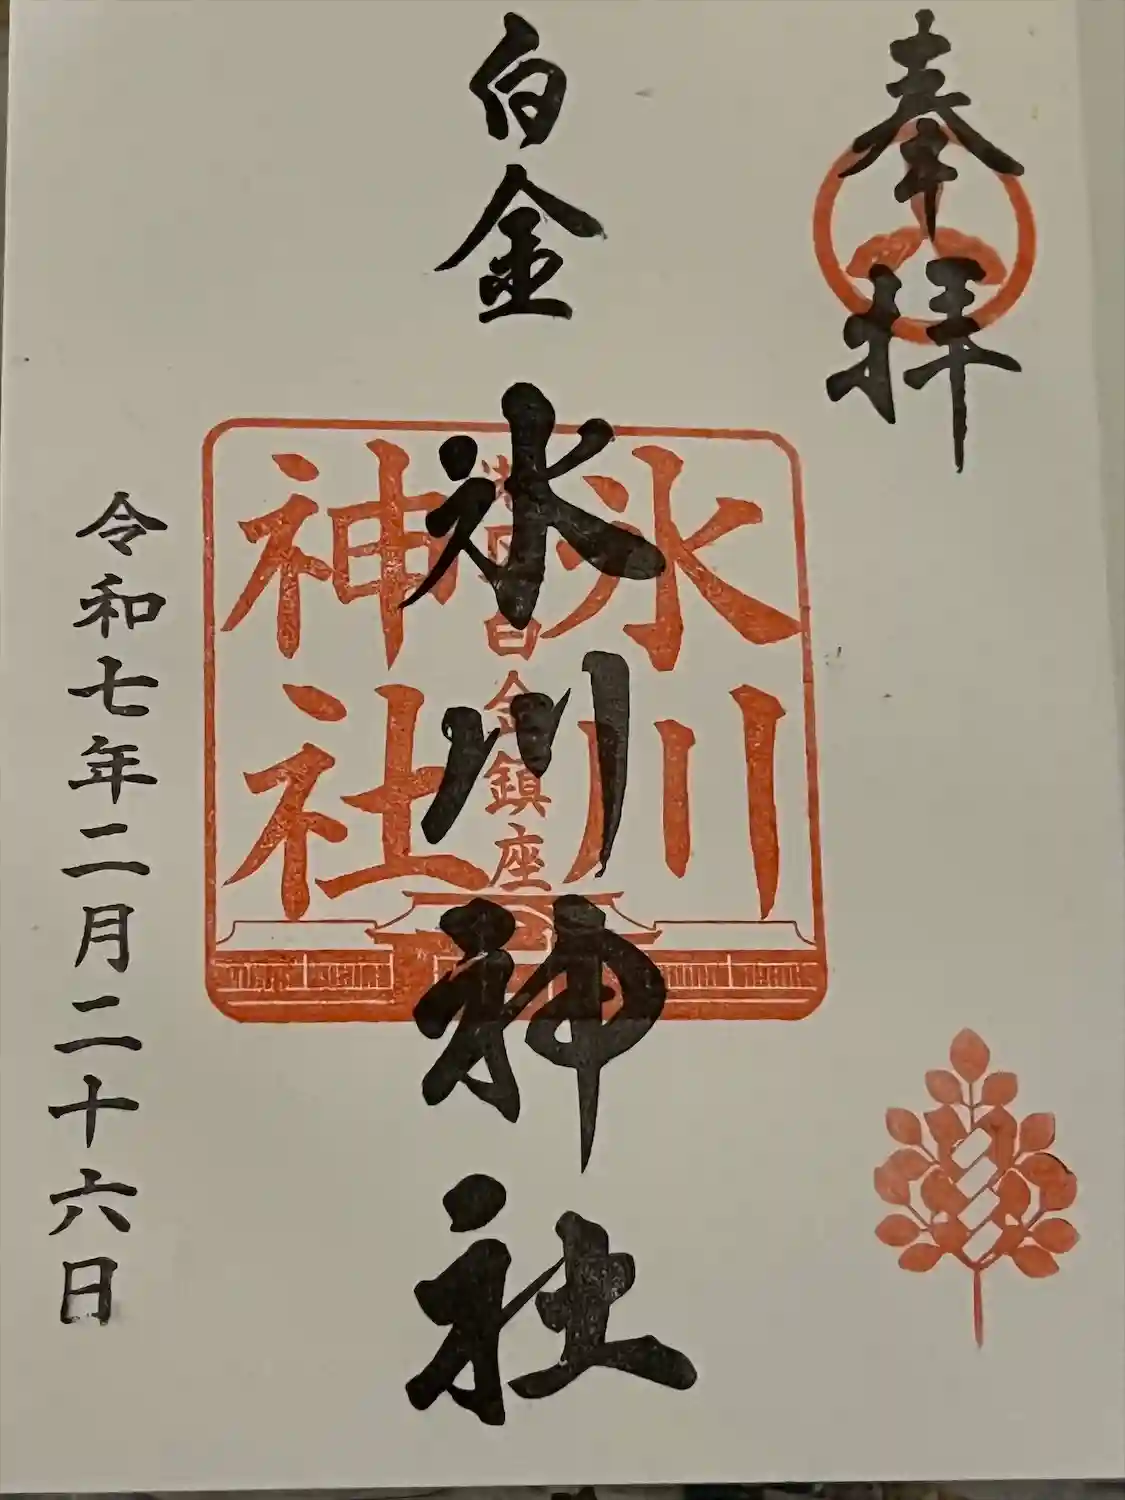 奉拝
白金
氷川神社
氷川
港区白金鎮座
神社
令和七年二月二十六日